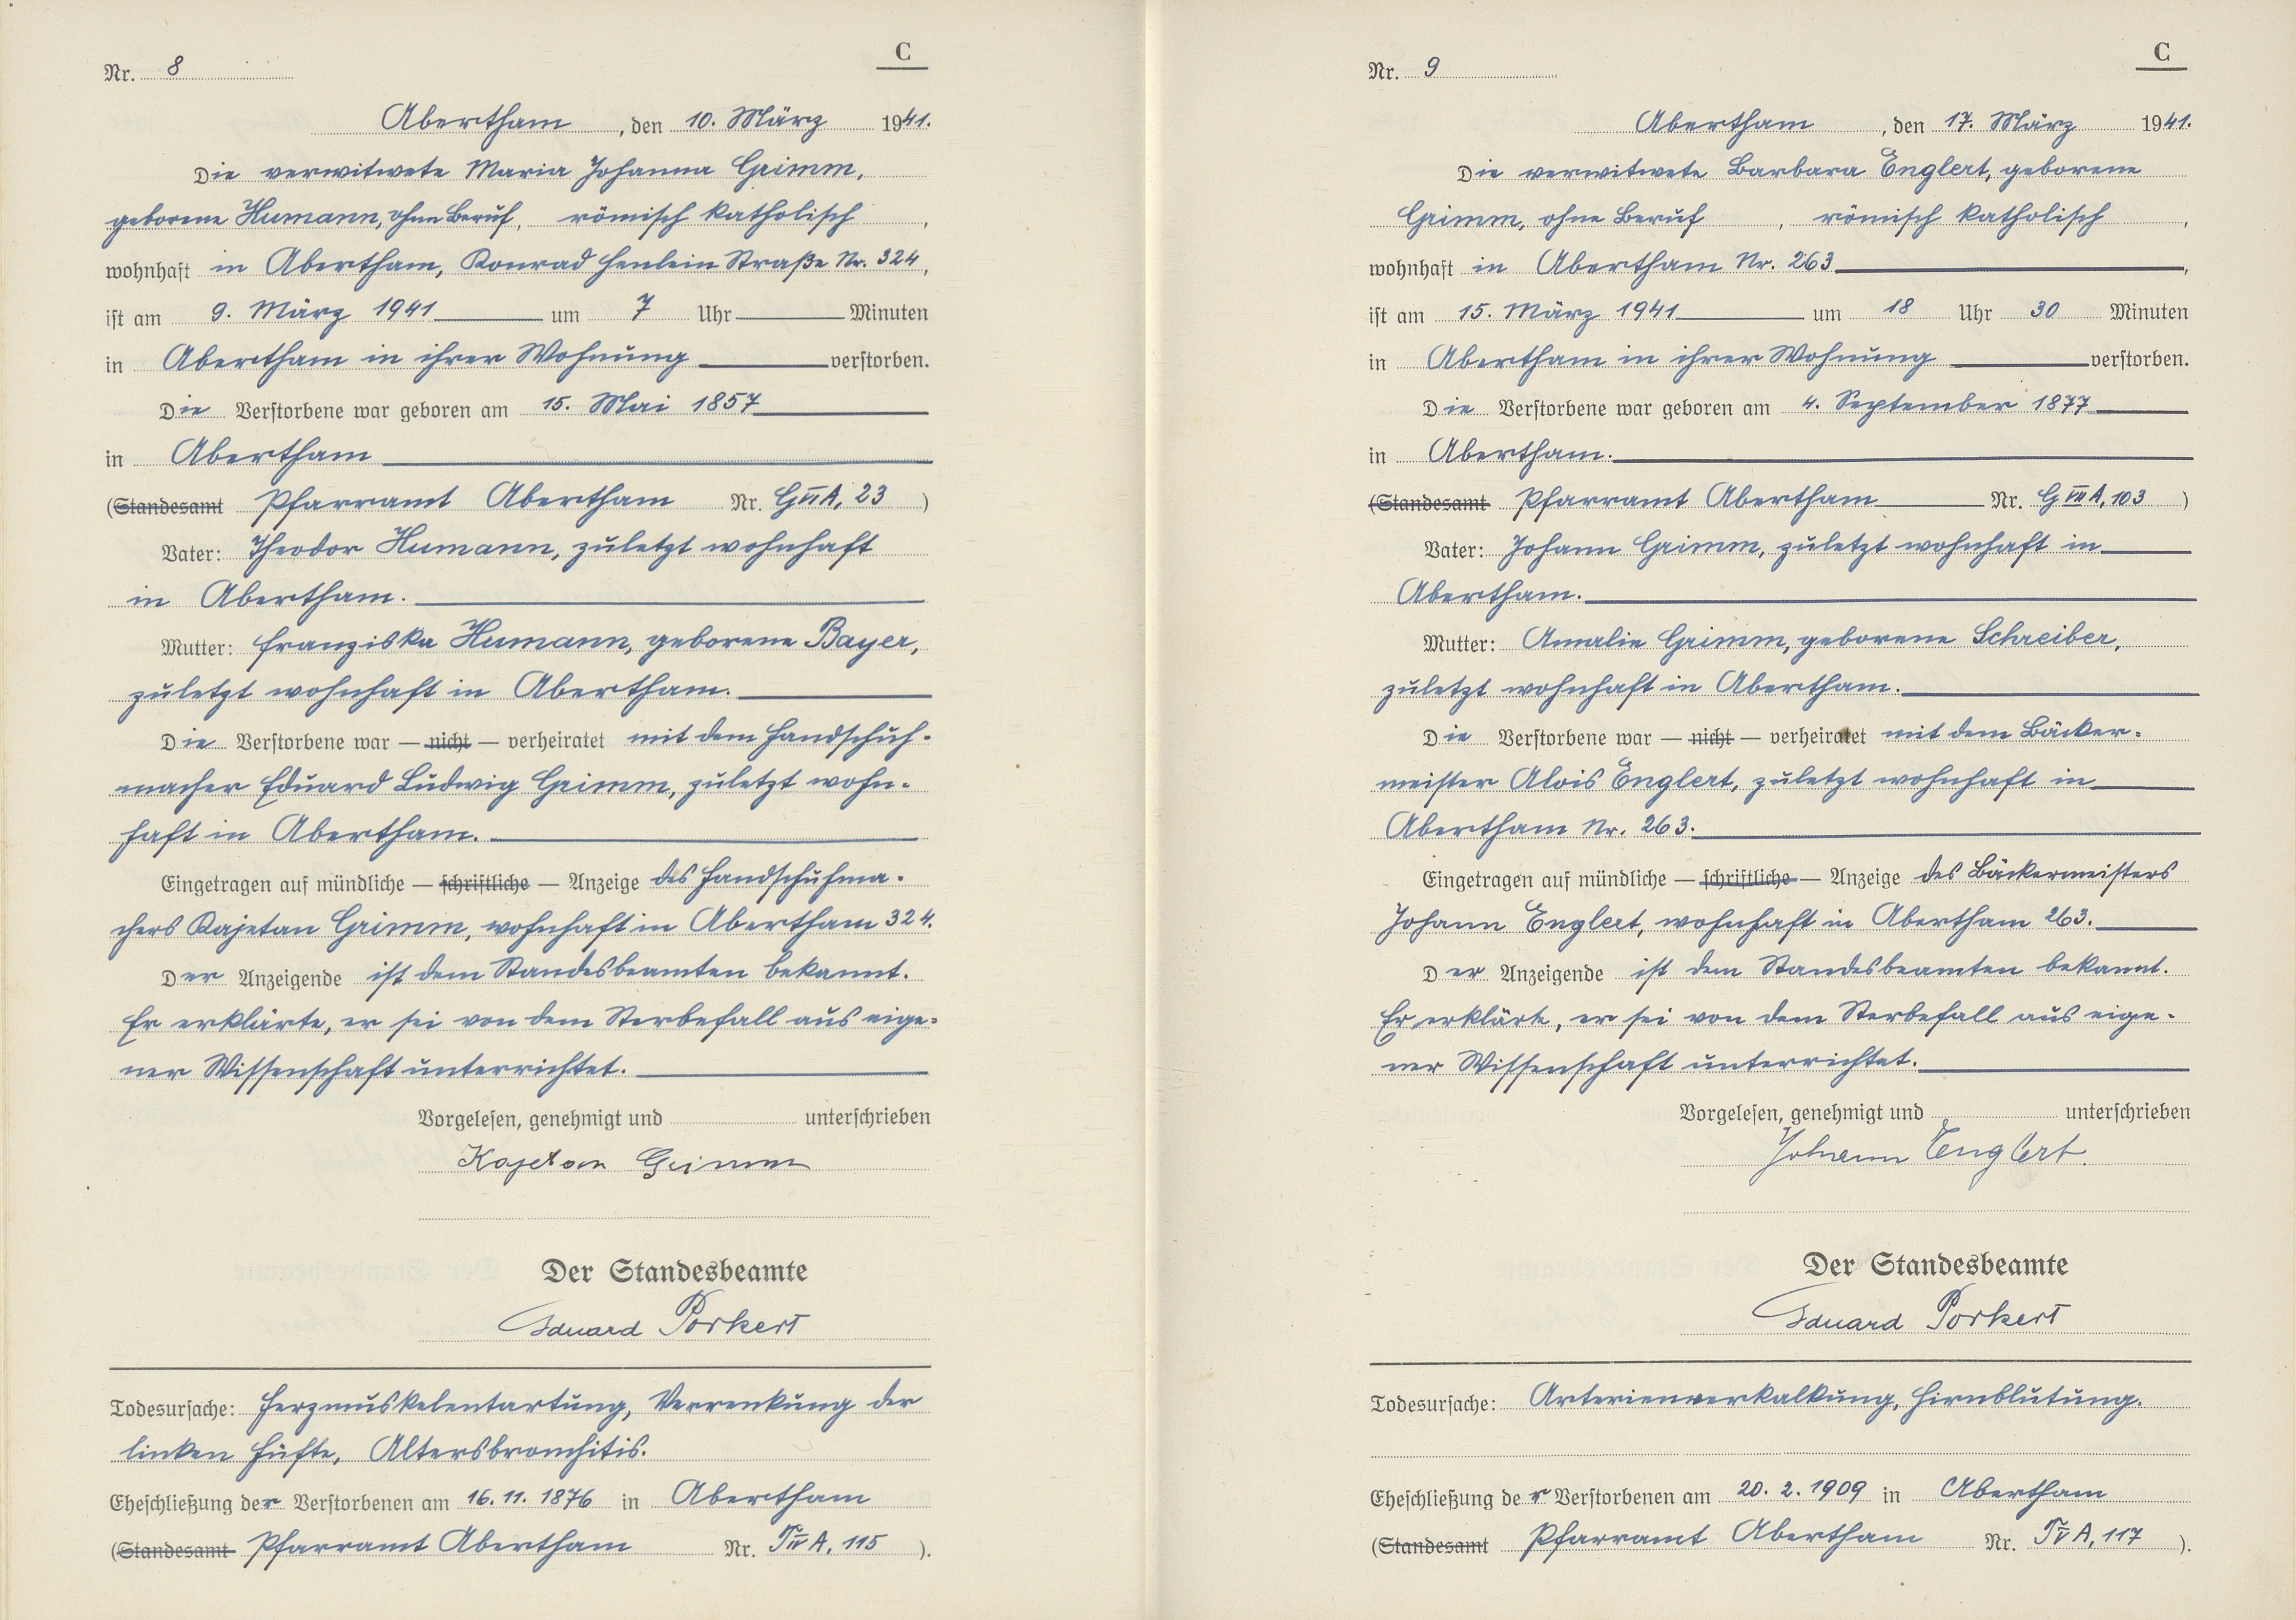 C
Nr. 8
Abertham, den 10. März 1941.
Die verwitwete Maria Johanna Grimm,
geborene Humann, ohne Beruf, römisch katholisch,
wohnhaft in Abertham, Konrad Henlein Straße Nr. 324,
ist am 9. März 1941 um 7 Uhr Minuten
in Abertham in ihrer Wohnung verstorben.
Die Verstorbene war geboren am 15. Mai 1857
in Abertham
(Standesamt Pfarramt Abertham Nr. G VI A, 23)
Vater: Theodor Humann, zuletzt wohnhaft
in Abertham.
Mutter: Franziska Humann, geborene Bayer,
zuletzt wohnhaft in Abertham.
Die Verstorbene war — nicht — verheiratet mit dem Handschuh-
macher Eduard Ludwig Grimm, zuletzt wohn-
haft in Abertham.
Eingetragen auf mündliche — schriftliche — Anzeige des Handschuhma-
chers Kajetan Grimm, wohnhaft in Abertham 324.
Der Anzeigende ist dem Standesbeamten bekannt.
Er erklärte, er sei von dem Sterbefall aus eige-
ner Wissenschaft unterrichtet.
Vorgelesen, genehmigt und unterschrieben
Kajetan Grimm
Der Standesbeamte
Eduard Porkert
Todesursache: Herzmuskelentartung, Verrenkung der
linken Hüfte, Altersbronchitis.
Eheschließung der Verstorbenen am 16. 11. 1876 in Abertham
(Standesamt Pfarramt Abertham Nr. T IV A, 115).
C
Nr. 9
Abertham, den 17. März 1941.
Die verwitwete Barbara Englert, geborene
Grimm, ohne Beruf, römisch katholisch,
wohnhaft in Abertham Nr. 263,
ist am 15. März 1941 um 18 Uhr 30 Minuten
in Abertham in ihrer Wohnung verstorben.
Die Verstorbene war geboren am 4. September 1877
in Abertham.
(Standesamt Pfarramt Abertham Nr. G VII A, 103)
Vater: Johann Grimm, zuletzt wohnhaft in
Abertham.
Mutter: Amalie Grimm, geborene Schreiber,
zuletzt wohnhaft in Abertham.
Die Verstorbene war — nicht — verheiratet mit dem Bäcker-
meister Alois Englert, zuletzt wohnhaft in
Abertham Nr. 263.
Eingetragen auf mündliche — schriftliche — Anzeige des Bäckermeisters
Johann Englert, wohnhaft in Abertham 263.
Der Anzeigende ist dem Standesbeamten bekannt.
Er erklärte, er sei von dem Sterbefall aus eige-
ner Wissenschaft unterrichtet.
Vorgelesen, genehmigt und unterschrieben
Johann Englert.
Der Standesbeamte
Eduard Porkert
Todesursache: Arterienverkalkung, Hirnblutung.
Eheschließung der Verstorbenen am 20. 2. 1909 in Abertham
(Standesamt Pfarramt Abertham Nr. T V A, 117).